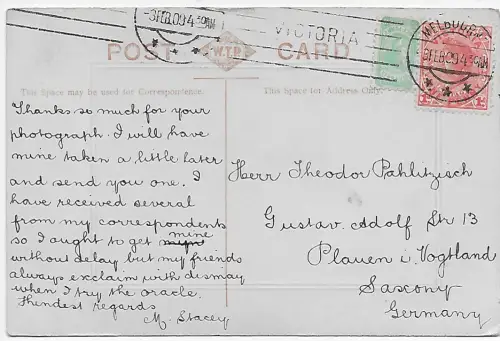 3 FEB 09 4
VICTORIA
MELBOURNE
3 FEB 09 4
POST W.T.P. CARD
This Space may be used for Correspondence.
This Space for Address Only.
Thanks so much for your
photograph. I will have
mine taken a little later
and send you one. I
have received several
from my correspondents
so I aught to get mine
without delay but my friends
always exclaim with dismay
when I try the oracle.
Kindest regards
M. Stacey
Herr Theodor Pahlitzisch
Gustav. Adolf Str 13
Plauen i. Vogtland
Saxony
Germany